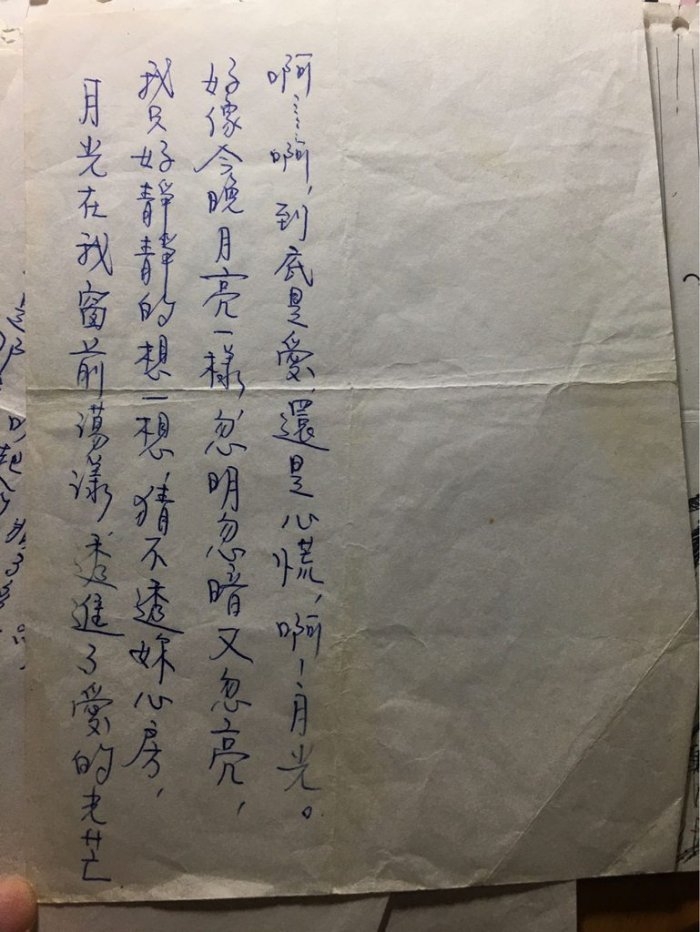 月光在我窗前蕩漾，透進了愛的光芒
我只好靜靜的想一想，猜不透妳心房，
好像今晚月亮一樣，忽明忽暗又忽亮，
啊……啊，到底是愛，還是心慌，啊！月光。